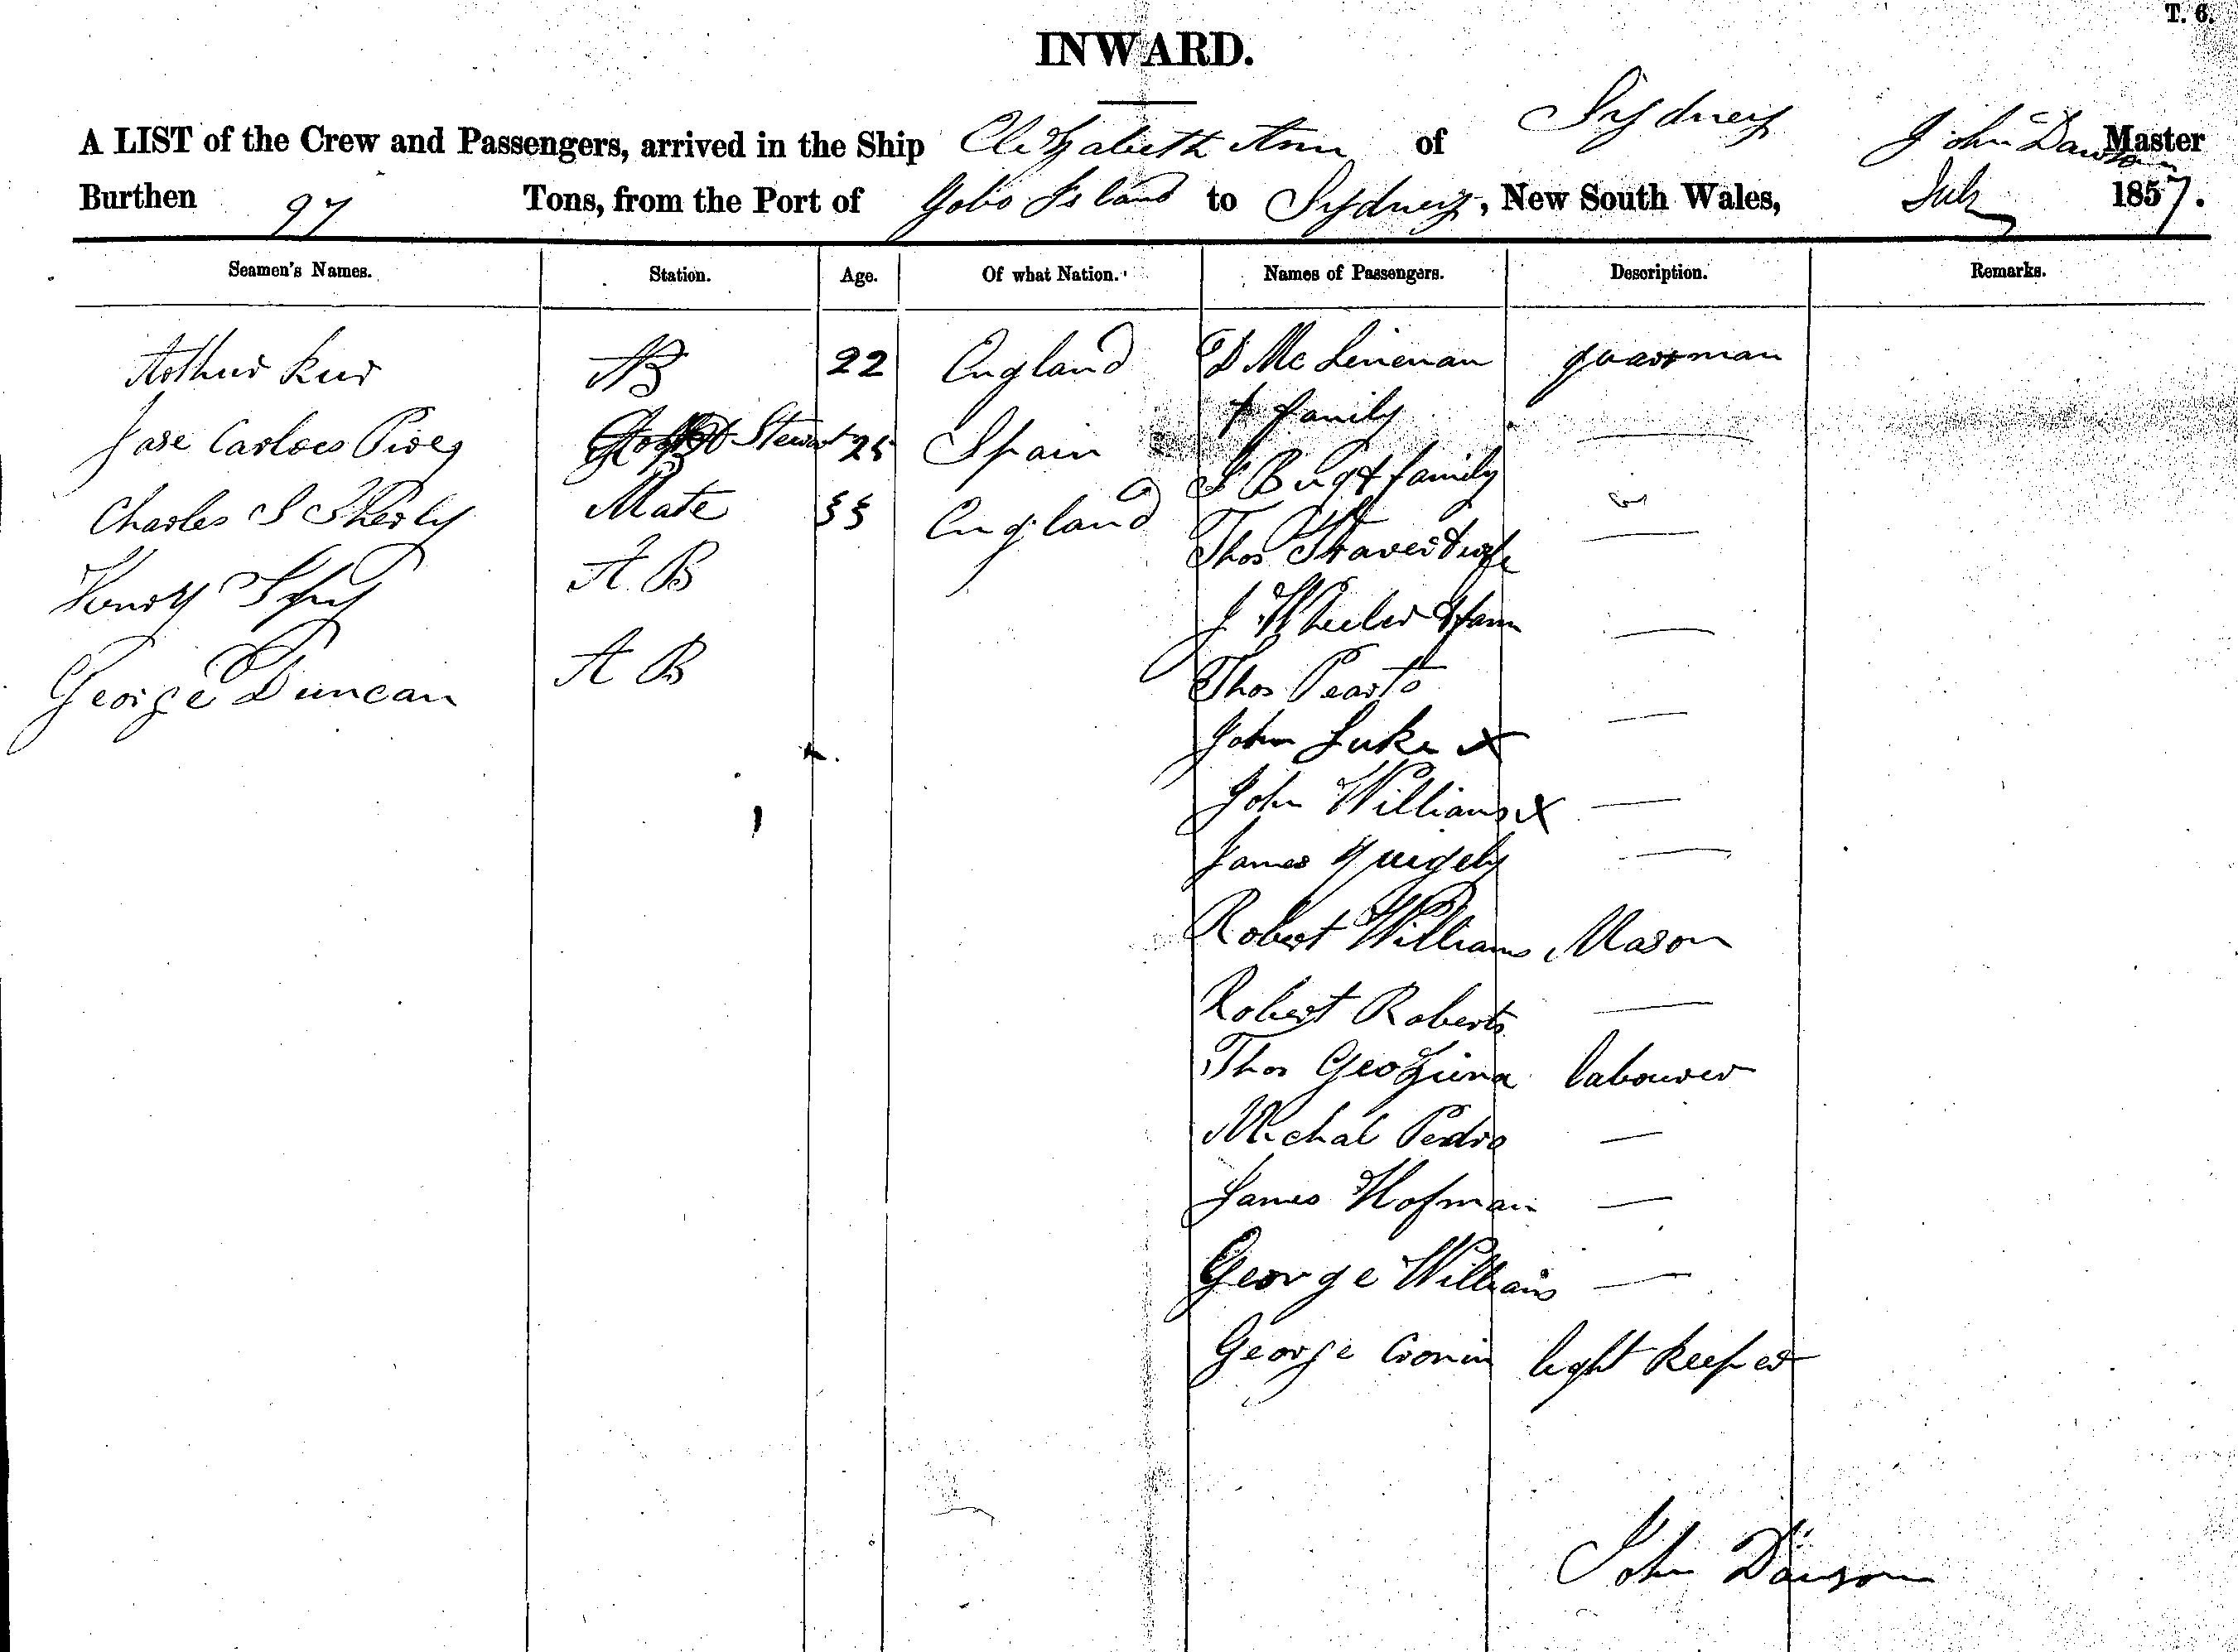 T. 6.
INWARD.
A LIST of the Crew and Passengers, arrived in the Ship Elizabeth Ann of Sydney John Dawson Master
Burthen 97 Tons, from the Port of Gabo Island to Sydney, New South Wales, July 1857.
Seamen's Names. Station. Age. Of what Nation. Names of Passengers. Description. Remarks.
Arthur AB 22 England D Mc Lineman
& family
Jose Carloes Steward 25 Spain
& family
Charles S Mate England
Thos Traver & wife
Henry A B
J Wheeler & fam
George Duncan A B
Thos
John Luke x
John Williams x
James Quigely
Robert Williams Mason
Robert Roberts —
Thos labourer
Michal Pedro —
James Hofman —
George Williams —
George Cronin light keeper
John Dawson